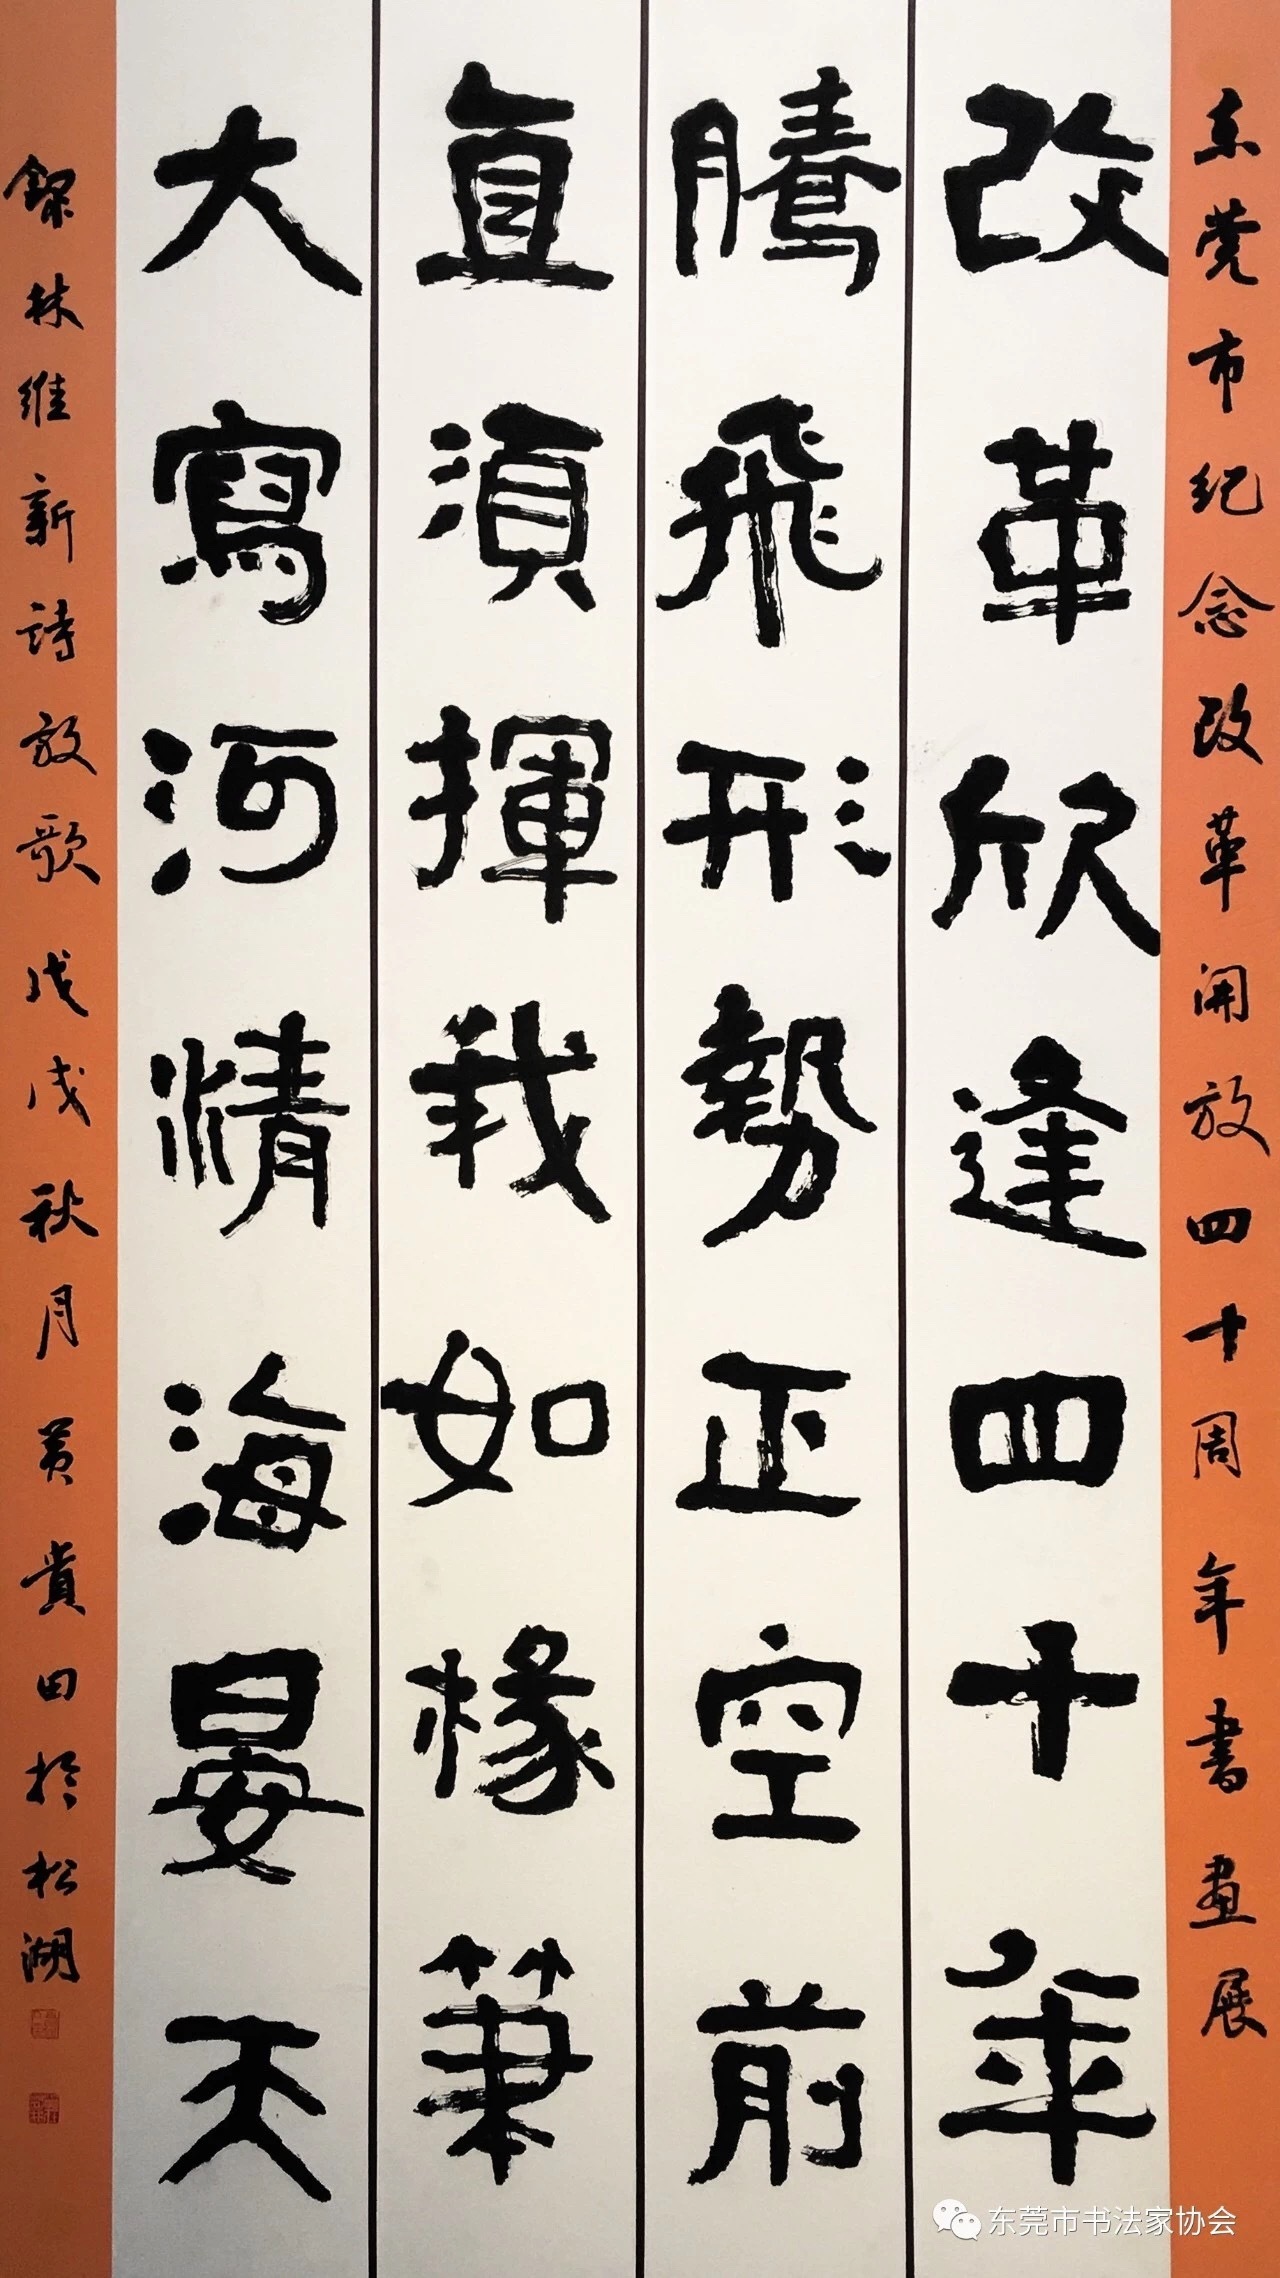 东莞市纪念改革开放四十周年书画展
改革欣逢四十年
腾飛形勢正空前
直須揮我如椽筆
大寫河清海晏天
録林维新詩放歌戊戌秋月黄貴田於松湖
东莞市书法家协会